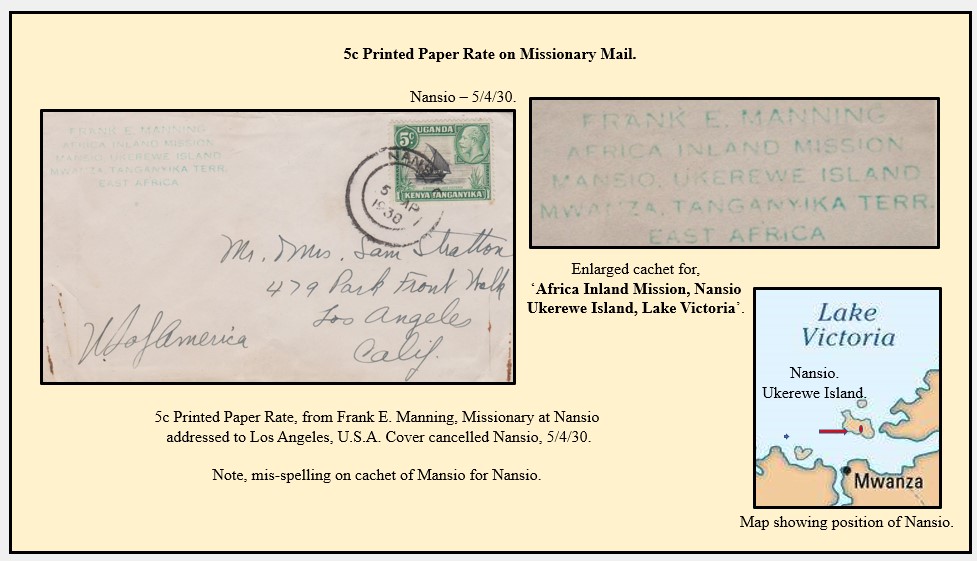 5c Printed Paper Rate on Missionary Mail.
Nansio – 5/4/30.
FRANK E. MANNING
AFRICA INLAND MISSION
MANSIO, UKEREWE ISLAND
MWANZA, TANGANYIKA TERR.
EAST AFRICA
5c UGANDA
KENYA TANGANYIKA
NANS
5 AP
1930
Mr. & Mrs. Sam Stratton
479 Park Front Walk
Los Angeles
Calif.
U.S of America
FRANK E. MANNING
AFRICA INLAND MISSION
MANSIO, UKEREWE ISLAND
MWANZA, TANGANYIKA TERR.
EAST AFRICA
Enlarged cachet for,
‘Africa Inland Mission, Nansio
Ukerewe Island, Lake Victoria’.
Lake
Victoria
Nansio.
Ukerewe Island.
Mwanza
Map showing position of Nansio.
5c Printed Paper Rate, from Frank E. Manning, Missionary at Nansio
addressed to Los Angeles, U.S.A. Cover cancelled Nansio, 5/4/30.
Note, mis-spelling on cachet of Mansio for Nansio.